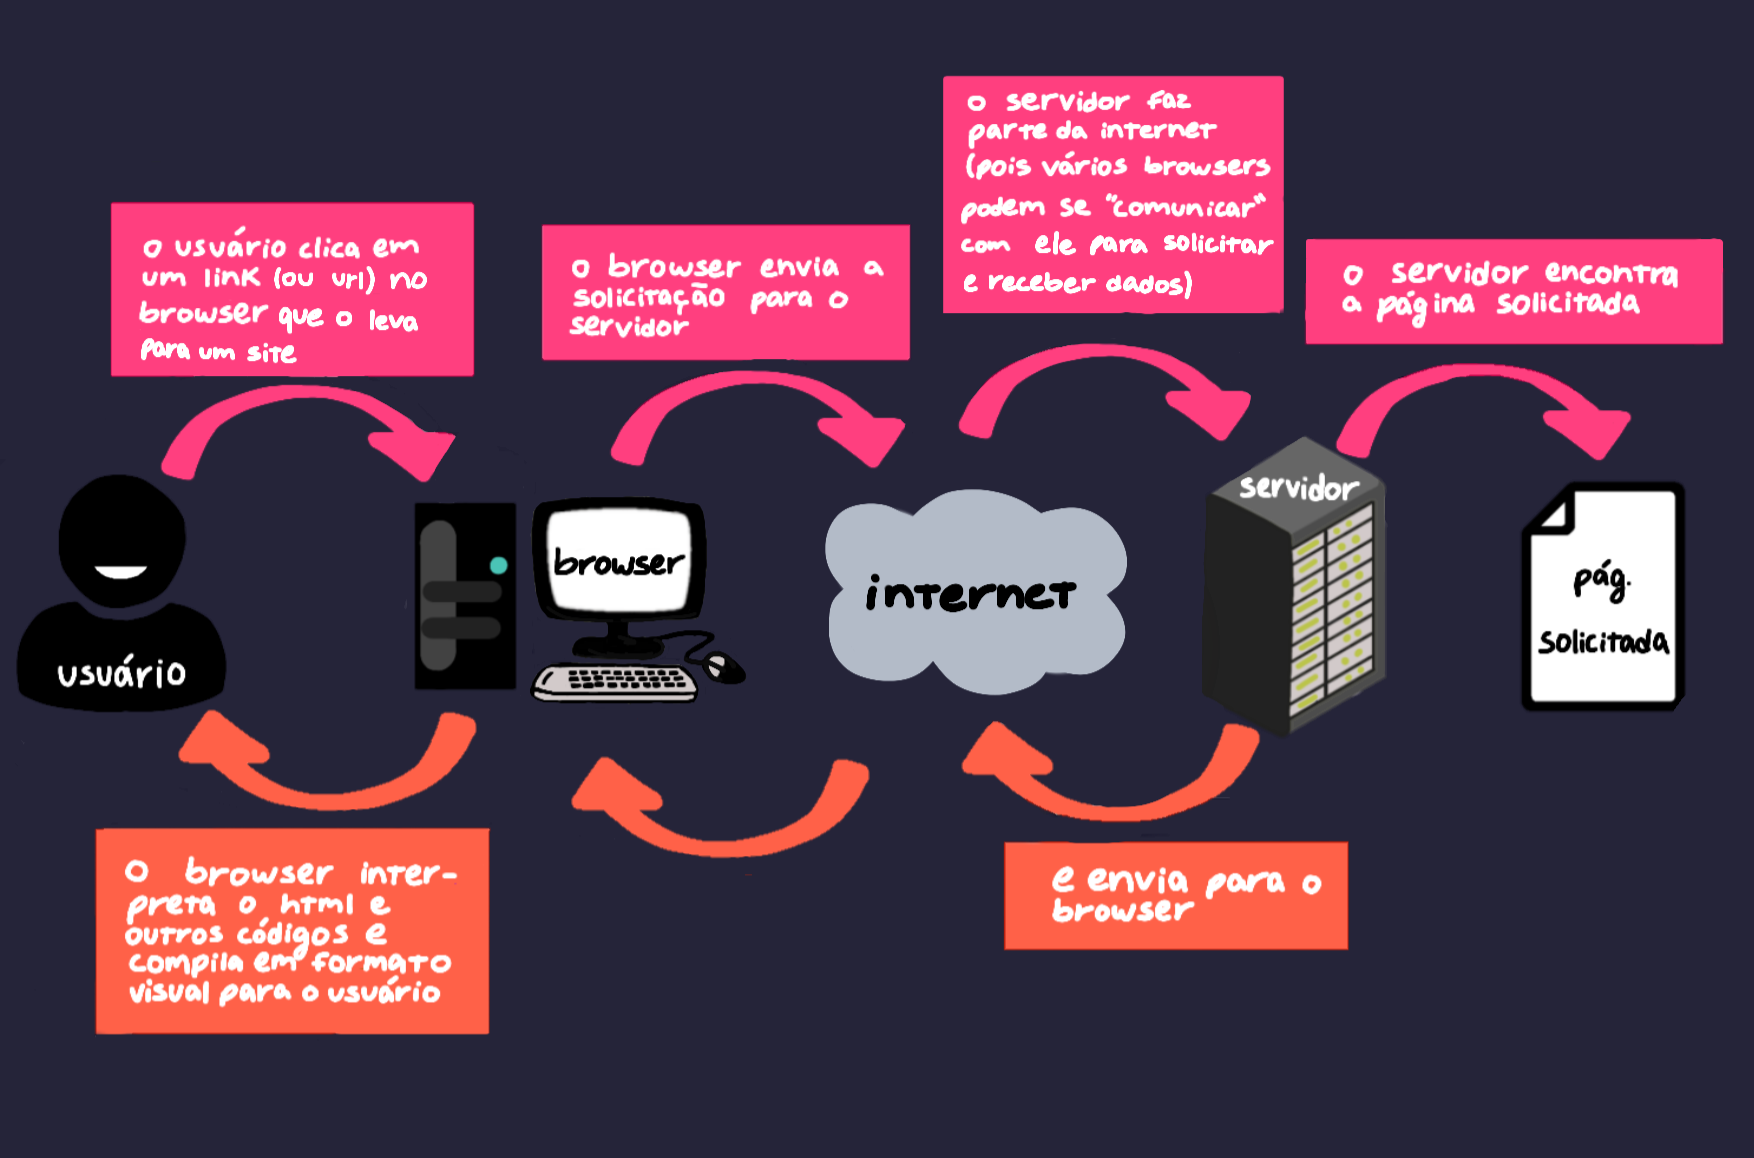 o usuário clica em
um link (ou url) no
browser que o leva
para um site
o browser envia a
solicitação para o
servidor
o servidor faz
parte da internet
(pois vários browsers
podem se "comunicar"
com ele para solicitar
e receber dados)
o servidor encontra
a página solicitada
usuário
browser
internet
servidor
pág.
solicitada
o browser inter-
preta o html e
outros códigos e
compila em formato
visual para o usuário
e envia para o
browser